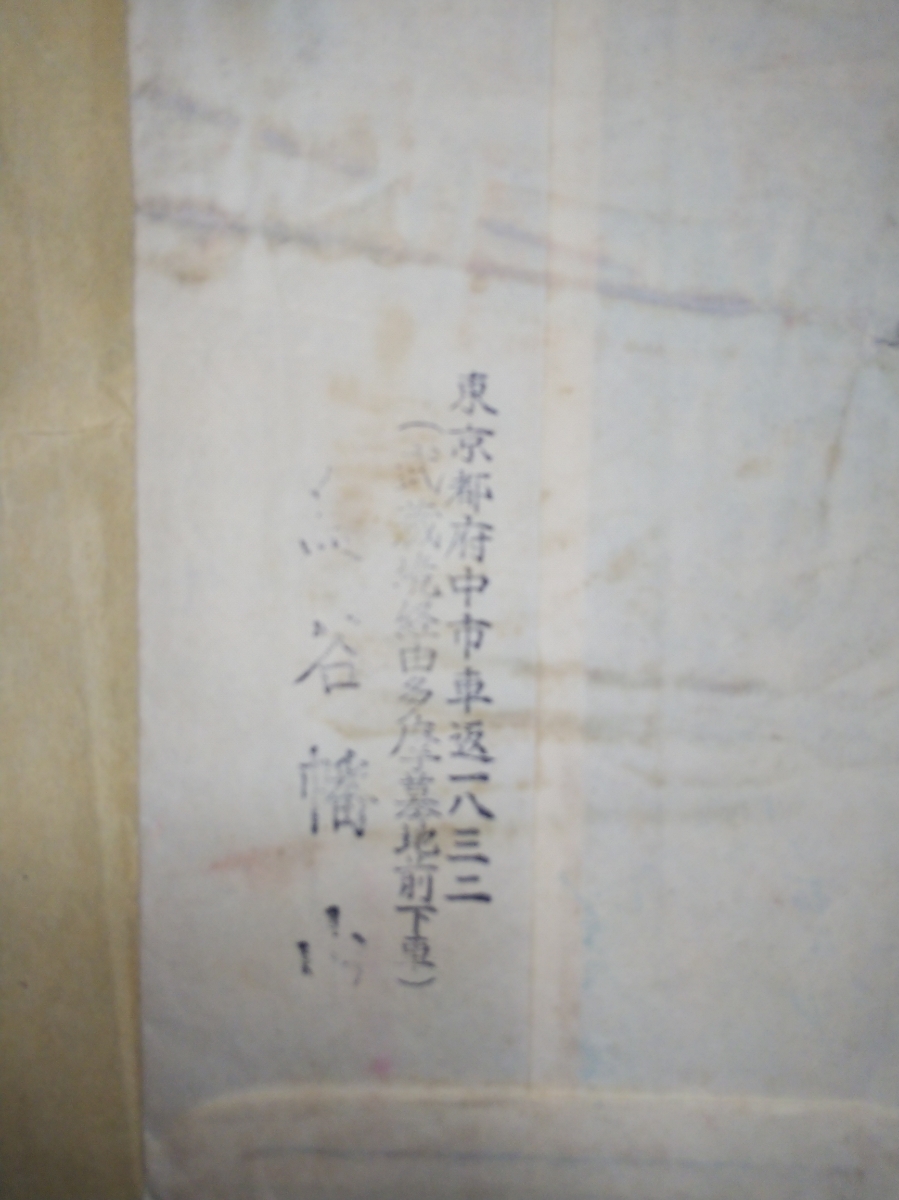 東京都府中市車返一八三二
(武蔵境経由多摩墓地前下車)
谷幡